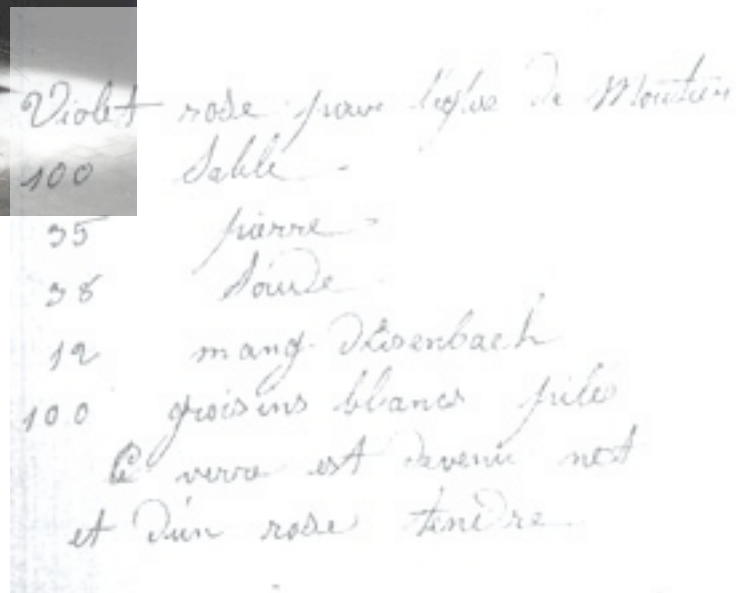 Violet rose pour l'église de Moutier
100 Sable
35 pierre
38 Soude
12 mang. d'Eisenbach
100 groisins blancs pilés
Ce verre est devenu net
et d'un rose tendre